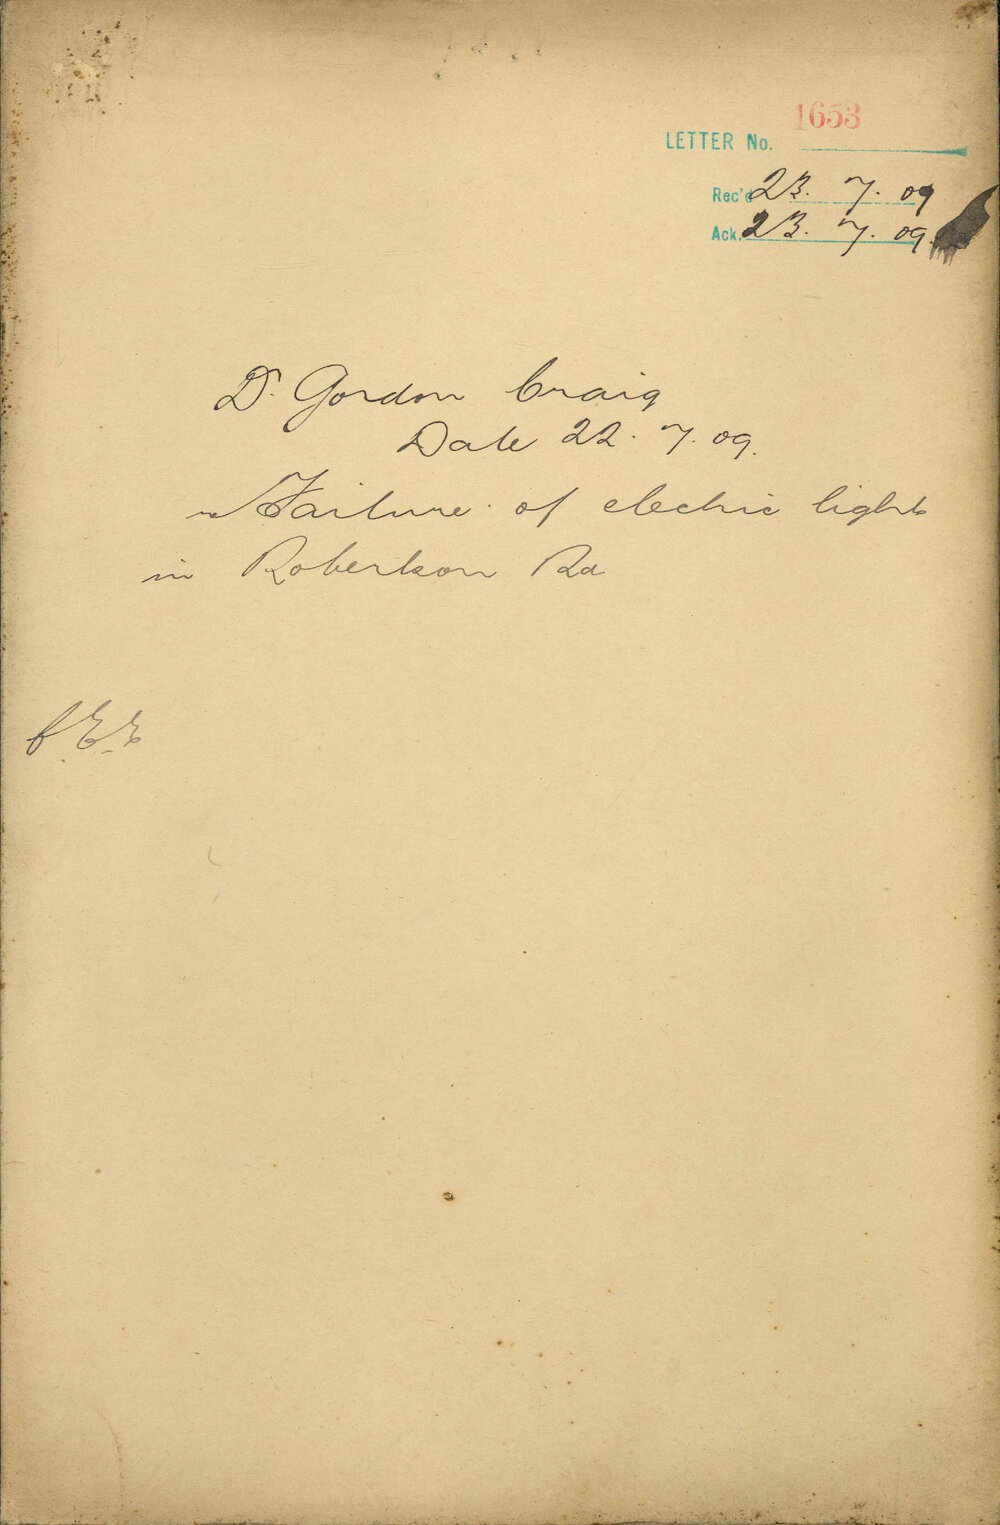 1653
LETTER No.
Rec'd 23. 7. 09
Ack. 23. 7. 09.
Dr. Gordon Craig
Date 22. 7. 09.
Failure of electric light
in Robertson Rd